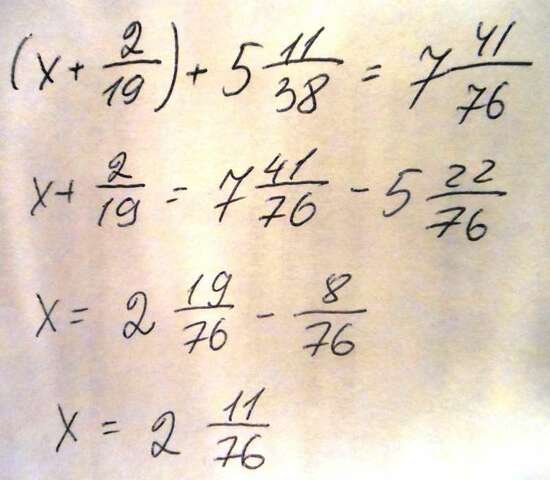 (x + 2/19) + 5 11/38 = 7 41/76
x + 2/19 = 7 41/76 - 5 22/76
x = 2 19/76 - 8/76
x = 2 11/76